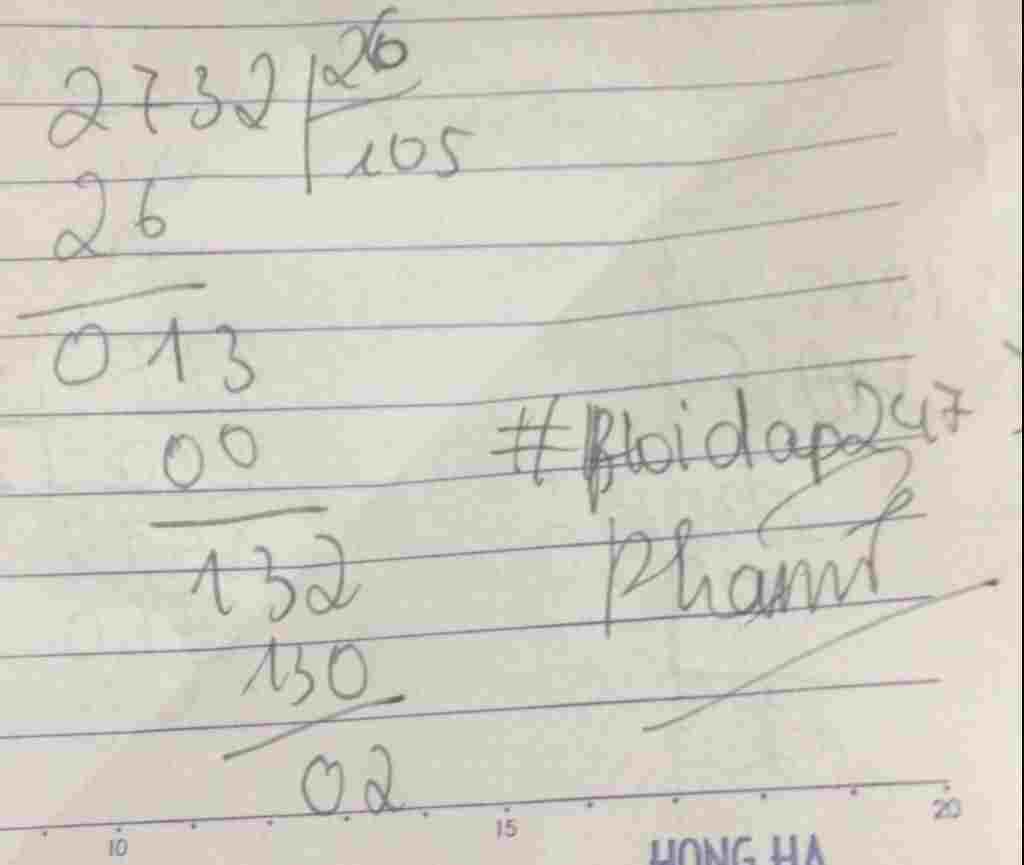 2732 26
105
26
013
00
#hoidap247
132
Phạm
130
02
10 15 20
HONG HA